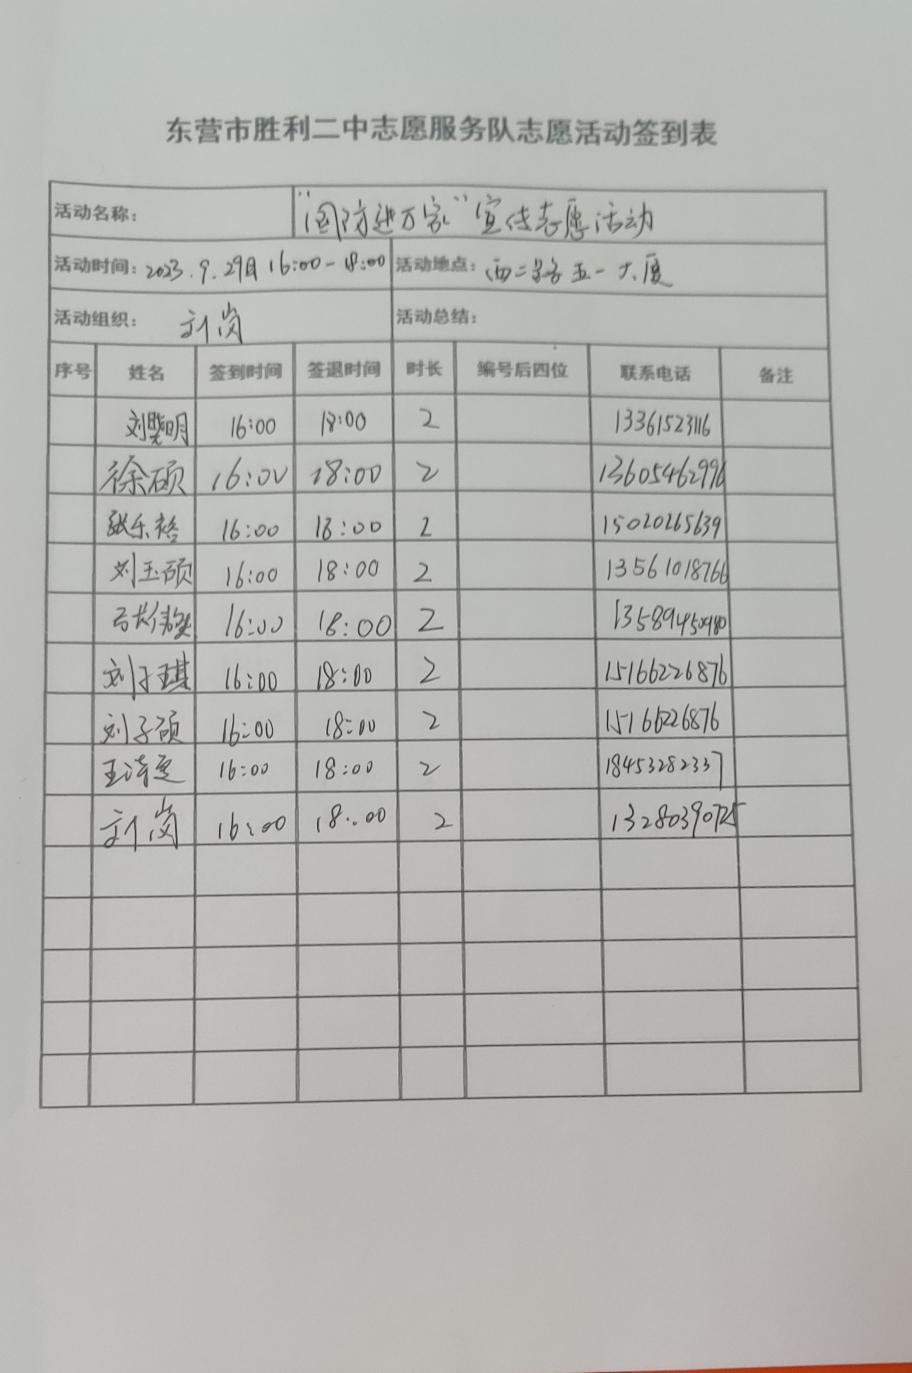 东营市胜利二中志愿服务队志愿活动签到表
活动名称： “国防进万家”宣传志愿活动
活动时间：2023.9.29日 16:00-18:00 活动地点：西二路五一大厦
活动组织： 刘岗 活动总结：
序号 姓名 签到时间 签退时间 时长 编号后四位 联系电话 备注
16:00 18:00 2 13361523116
徐硕 16:00 18:00 2 13605462996
张乐裕 16:00 18:00 2 15020265639
刘玉硕 16:00 18:00 2 13561018766
16:00 18:00 2
刘子琪 16:00 18:00 2 15166226876
刘子硕 16:00 18:00 2 15166226876
16:00 18:00 2 18453282337
刘岗 16:00 18:00 2 13280390725